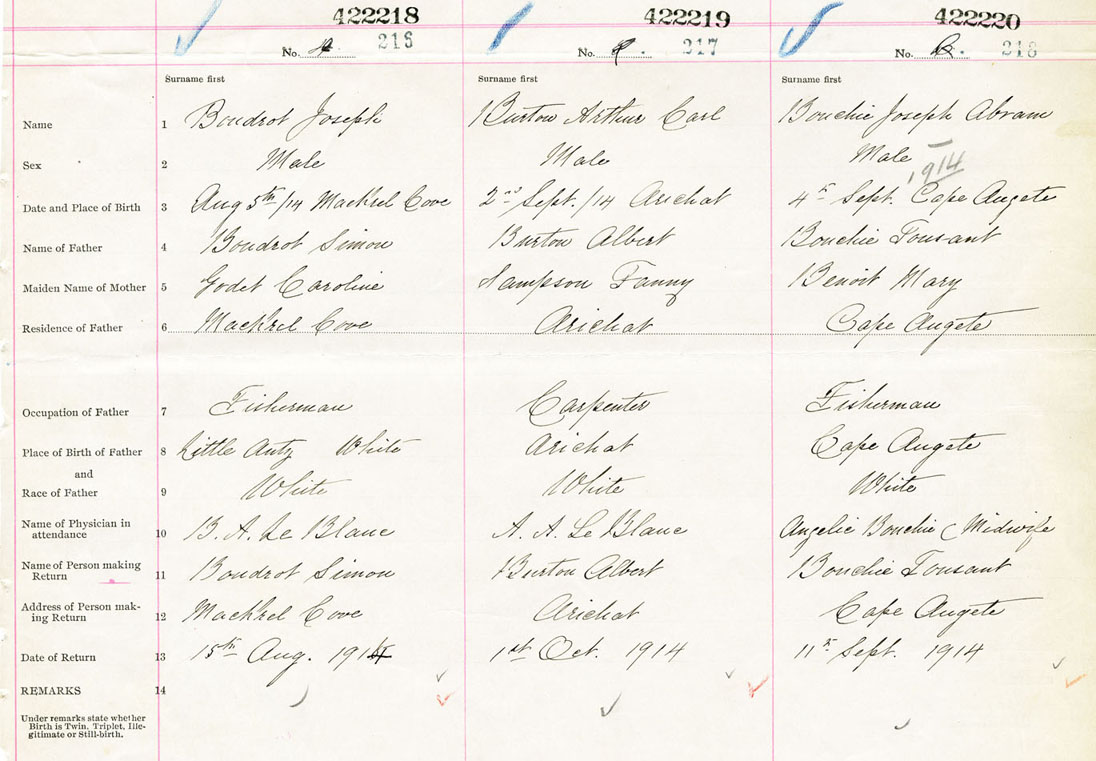 422218 422219 422220
No. 4. 216 No. 217 No. 218
Surname first Surname first Surname first
Name 1 Boudrot Joseph Burton Arthur Carl Bouchie Joseph Abram
Sex 2 Male Male Male 1914
Date and Place of Birth 3 Aug 5th/14 Mackrel Cove 2nd Sept./14 Arichat 4th Sept. Cape Augete
Name of Father 4 Boudrot Simon Burton Albert Bouchie Tousant
Maiden Name of Mother 5 Godet Caroline Sampson Fanny Benoit Mary
Residence of Father 6 Mackrel Cove Arichat Cape Augete
Occupation of Father 7 Fisherman Carpenter Fisherman
Place of Birth of Father 8 Little White Arichat Cape Augete
and
Race of Father 9 White White White
Name of Physician in
attendance 10 B. A. Le Blanc A. A. Le Blanc Angelic Bouchie (Midwife
Name of Person making
Return 11 Boudrot Simon Burton Albert Bouchie Tousant
Address of Person mak-
ing Return 12 Mackrel Cove Arichat Cape Augete
Date of Return 13 15th Aug. 1914 1st Oct. 1914 11th Sept. 1914
REMARKS 14
Under remarks state whether
Birth is Twin, Triplet, Ille-
gitimate or Still-birth.